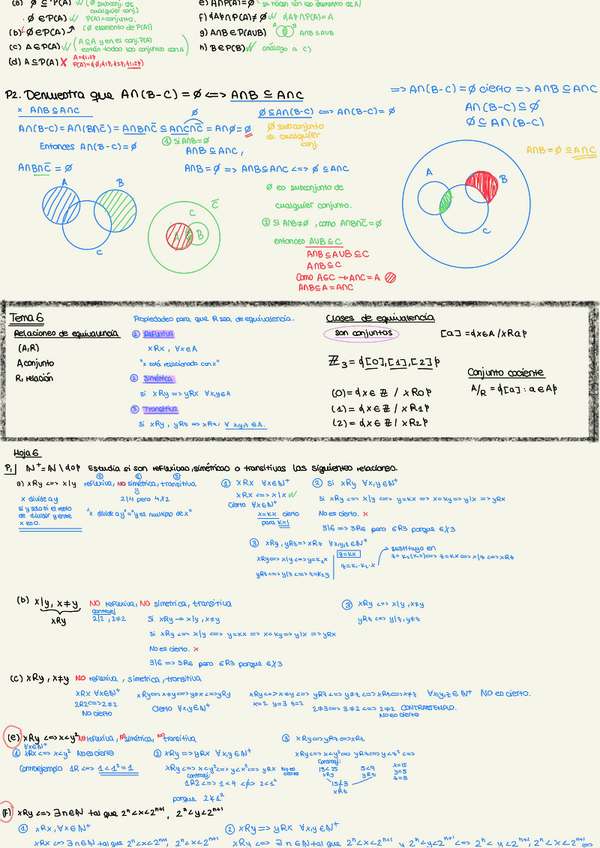 (a) ∅ ⊆ P(A) ✓ (∅ subconj. de cualquier conj.)
∅ ∈ P(A) ✓ P(A) = conjunto.
(b) ∅ ∈ P(A) (∅ elemento de P(A))
(c) A ∈ P(A) ✓ (A ⊆ A y en el conj. P(A) están todos los conjuntos con A)
(d) A ⊆ P(A) ✗
e) A∩P(A) = ∅
f) {A}∩P(A) ≠ ∅ ✓ {A}∩P(A) = A
g) A∩B ∈ P(A∪B) A∩B ⊆ A∪B
h) B ∈ P(B) ✓ análogo a c)
P2. Demuestra que A∩(B-C) = ∅ <=> A∩B ⊆ A∩C
* A∩B ⊆ A∩C
∅ ∅ ⊆ A∩(B-C) <=> A∩(B-C) = ∅
A∩(B-C) = A∩(B∩C̅) = A∩B∩C̅ ⊆ A∩C∩C̅ = A∩∅ = ∅
∅ subconjunto de cualquier conj.
Entonces A∩(B-C) = ∅
① Si A∩B = ∅
A∩B ⊆ A∩C,
A∩B∩C̅ = ∅
A∩B = ∅ => A∩B ⊆ A∩C <=> ∅ ⊆ A∩C
∅ es subconjunto de
cualquier conjunto.
② Si A∩B ≠ ∅, como A∩B∩C̅ = ∅
entonces A∪B ⊆ C
A∩B ⊆ A∪B ⊆ C
A∩B ⊆ C
Como A ⊆ C → A∩C = A
A∩B ⊆ A = A∩C
A B C
C C̅ A B
=> A∩(B-C) = ∅ cierto => A∩B ⊆ A∩C
A∩(B-C) ⊆ ∅
∅ ⊆ A∩(B-C)
A∩B = ∅ ⊆ A∩C
A B C
Tema 6
Relaciones de equivalencia
(A, R)
A conjunto
R, relación
Propiedades para que R sea de equivalencia.
① Reflexiva
xRx, ∀x∈A
"x está relacionado con x"
② Simétrica
Si xRy => yRx ∀x,y∈A
③ Transitiva
Si xRy, yRz => xRz, ∀x,y,z∈A.
Clases de equivalencia
son conjuntos [a] = {x∈A / xRa}
ℤ₃ = {[0], [1], [2]}
[0] = {x∈ℤ / xR0}
[1] = {x∈ℤ / xR1}
[2] = {x∈ℤ / xR2}
Conjunto cociente
A/R = {[a] : a∈A}
Hoja 6
P1 ℕ⁺ = ℕ \ {0} Estudia si son reflexivas, simétricas o transitivas las siguientes relaciones.
a) xRy <=> x|y reflexiva, no simétrica, transitiva
x divide a y
2|4 pero 4∤2
si y solo si el resto de dividir y entre x es 0.
"x divide a y" = "y es multiplo de x"
① xRx ∀x∈ℕ⁺
xRx <=> x|x ✓
Cierto ∀x∈ℕ⁺
x = kx cierto
para k=1
② Si xRy => yRx ∀x,y∈ℕ⁺
Si xRy <=> x|y <=> y=kx => x=ky => y|x => yRx
No es cierto. ✗
3|6 => 3R6 pero 6R3 porque 6∤3
③ xRy, yRz => xRz ∀x,y,z∈ℕ⁺
xRy <=> x|y <=> y=k₁x
yRz <=> y|z <=> z=k₂y
y=kx
z=k₁·k₂·x
sustituyo en
z=k₂(k₁x) <=> z=kx <=> x|z <=> xRz
(b) x|y, x≠y NO reflexiva, NO simétrica, transitiva
xRy
contraej
2|2, 2≠2
Si xRy → x|y, x≠y
Si xRy <=> x|y <=> y=kx => x=ky => y|x => yRx
No es cierto. ✗
3|6 => 3R6 pero 6R3 porque 6∤3
③ xRy <=> x|y, x≠y
yRz <=> y|z, y≠z
(c) xRy, x≠y NO reflexiva, simétrica, transitiva
xRx ∀x∈ℕ⁺
2R2 <=> 2≠2
No cierto
xRy <=> x≠y <=> y≠x <=> yRy
Cierto ∀x,y∈ℕ⁺
xRy <=> x≠y <=> yRz <=> y≠z <=> xRz <=> x≠z ∀x,y,z∈ℕ⁺ No es cierto.
x=2 y=3 z=2
2≠3 <=> 3≠2 <=> 2≠2 CONTRAEJEMPLO.
No es cierto
(e) xRy <=> x<y² NO reflexiva, NO simétrica, NO transitiva
∀x∈ℕ⁺
① xRx <=> x<x² No es cierto
Contraejemplo 1R1 <=> 1<1²=1
② xRy => yRx ∀x,y∈ℕ⁺
xRy <=> x<y² <=> y<x² <=> yRx No es cierto
Contraej:
1R2 <=> 1<4 <≠> 2<1²
porque 2≮1²
③ xRy <=> yRz <=> xRz
xRy <=> x<y² <=> yRz <=> y<z² <=>
Contraej:
15<25 5<9
xRy yRz
15≮9
xRz
x=15
y=5
z=3
(F) xRy <=> ∃n∈ℕ tal que 2ⁿ<x<2ⁿ⁺¹, 2ⁿ<y<2ⁿ⁺¹
① xRx, ∀x∈ℕ⁺
② xRy => yRx ∀x,y∈ℕ⁺
xRx <=> ∃n∈ℕ tal que 2ⁿ<x<2ⁿ⁺¹, 2ⁿ<x<2ⁿ⁺¹
xRy <=> ∃n∈ℕ tal que 2ⁿ<x<2ⁿ⁺¹ y 2ⁿ<y<2ⁿ⁺¹ <=> 2ⁿ<y<2ⁿ⁺¹, 2ⁿ<x<2ⁿ⁺¹ <=>